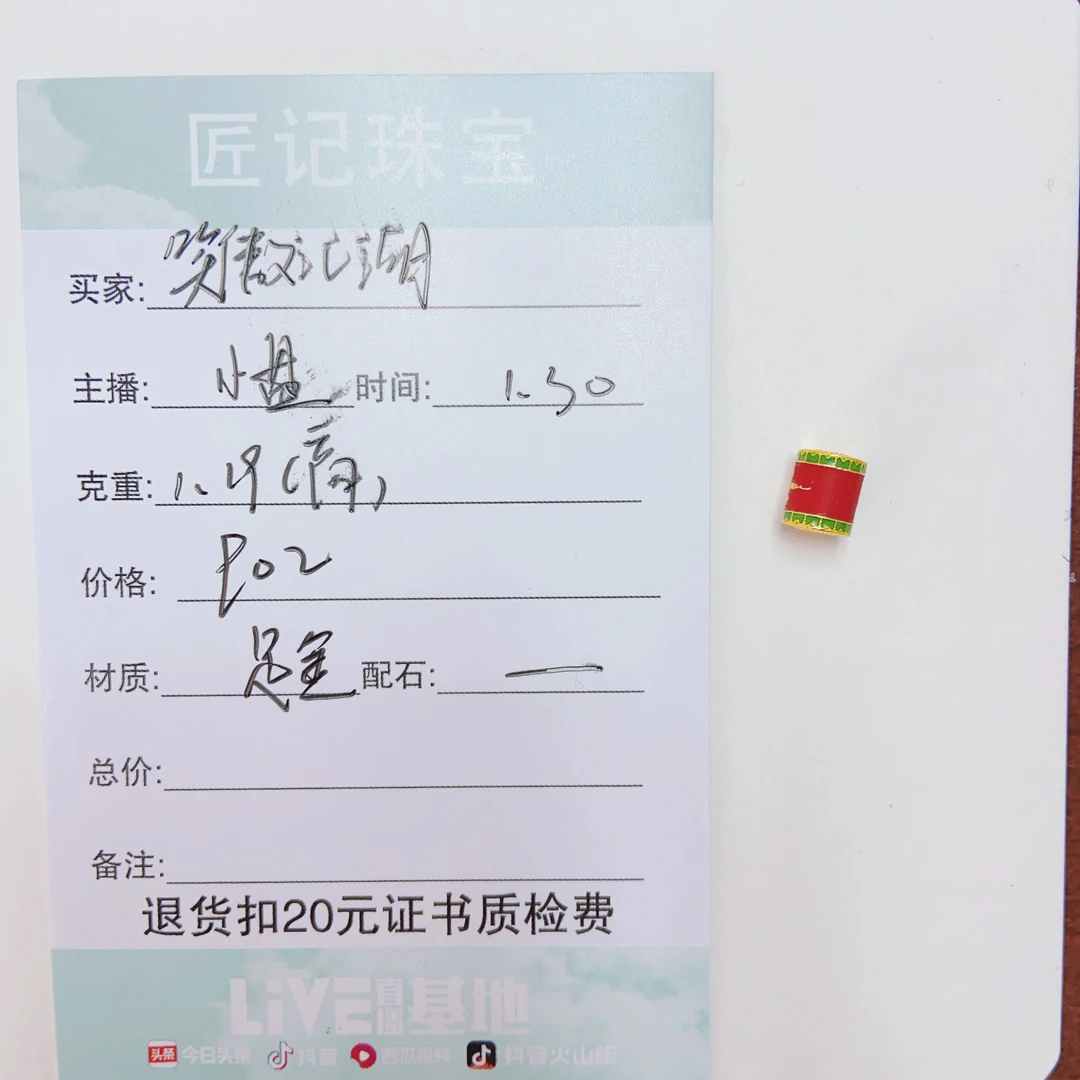 匠记珠宝
买家: 笑傲江湖
主播: 小盘 时间: 1.30
克重: 1.19
价格: 902
材质: 足金 配石: 一
总价:
备注:
退货扣20元证书质检费
LiVE直播基地
头条 今日头条 抖音 西瓜视频 抖音火山版